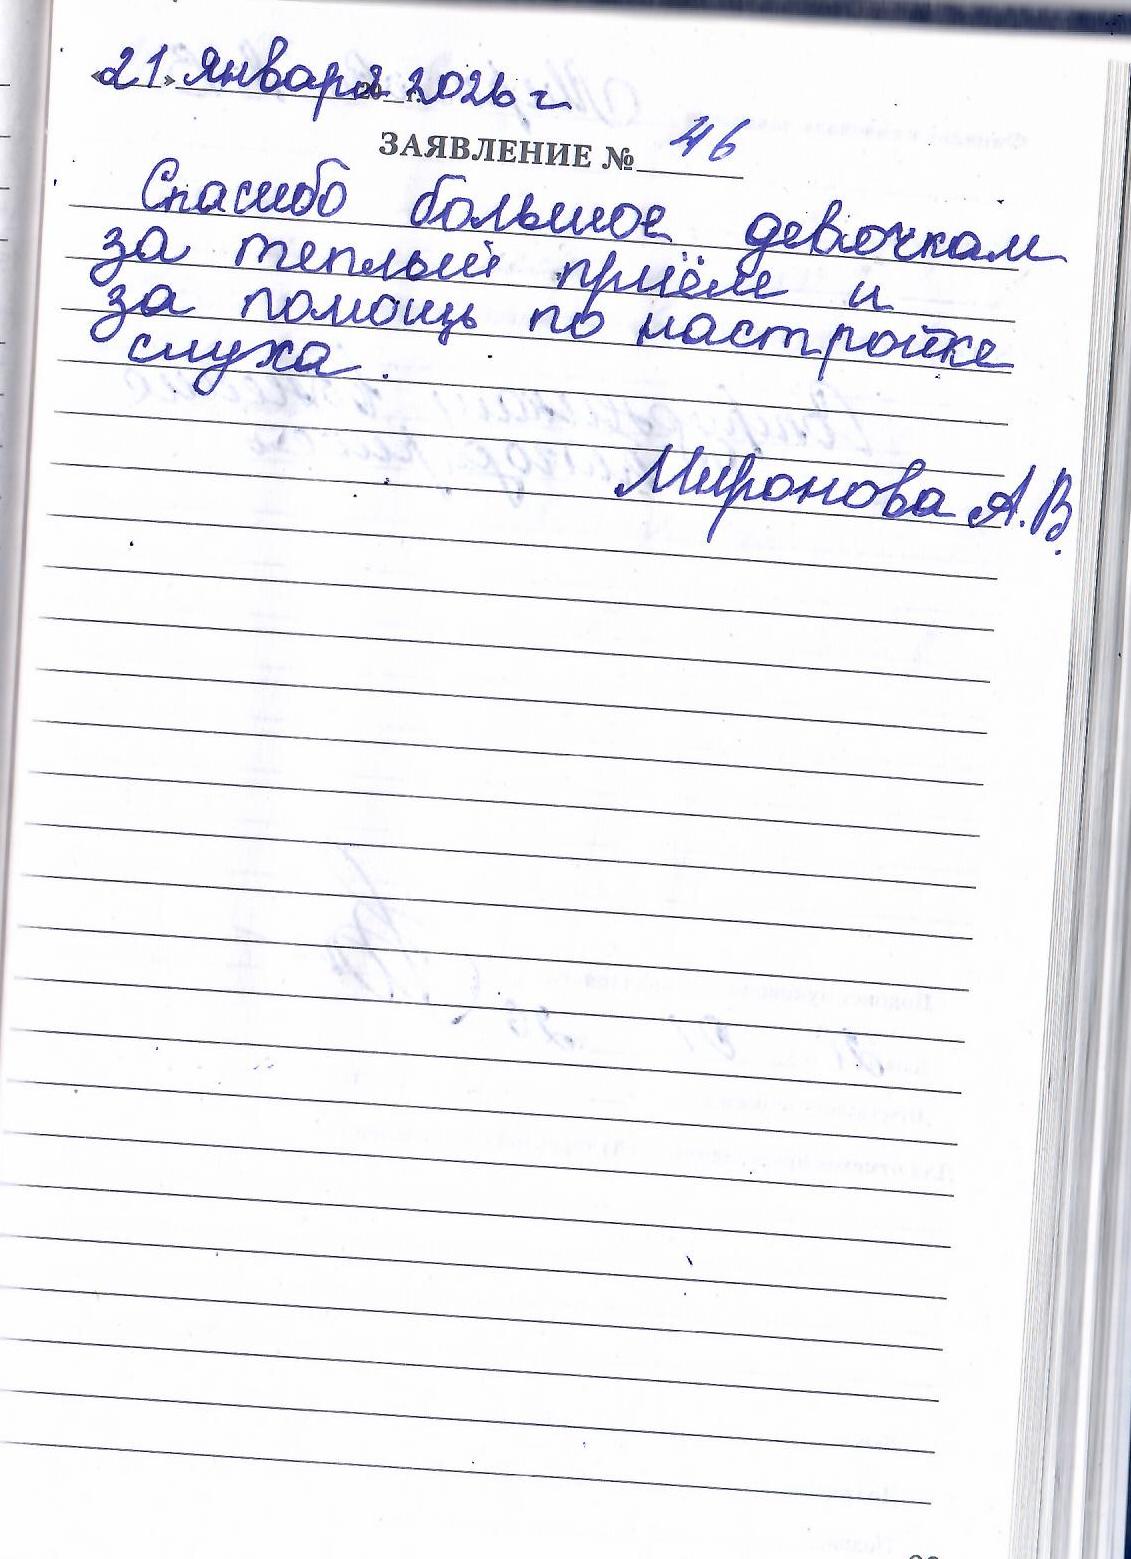 «21» января 2026 г
ЗАЯВЛЕНИЕ № 46
Спасибо большое девочкам
за теплый приём и
за помощь по настройке
слуха.
Миронова А.В.